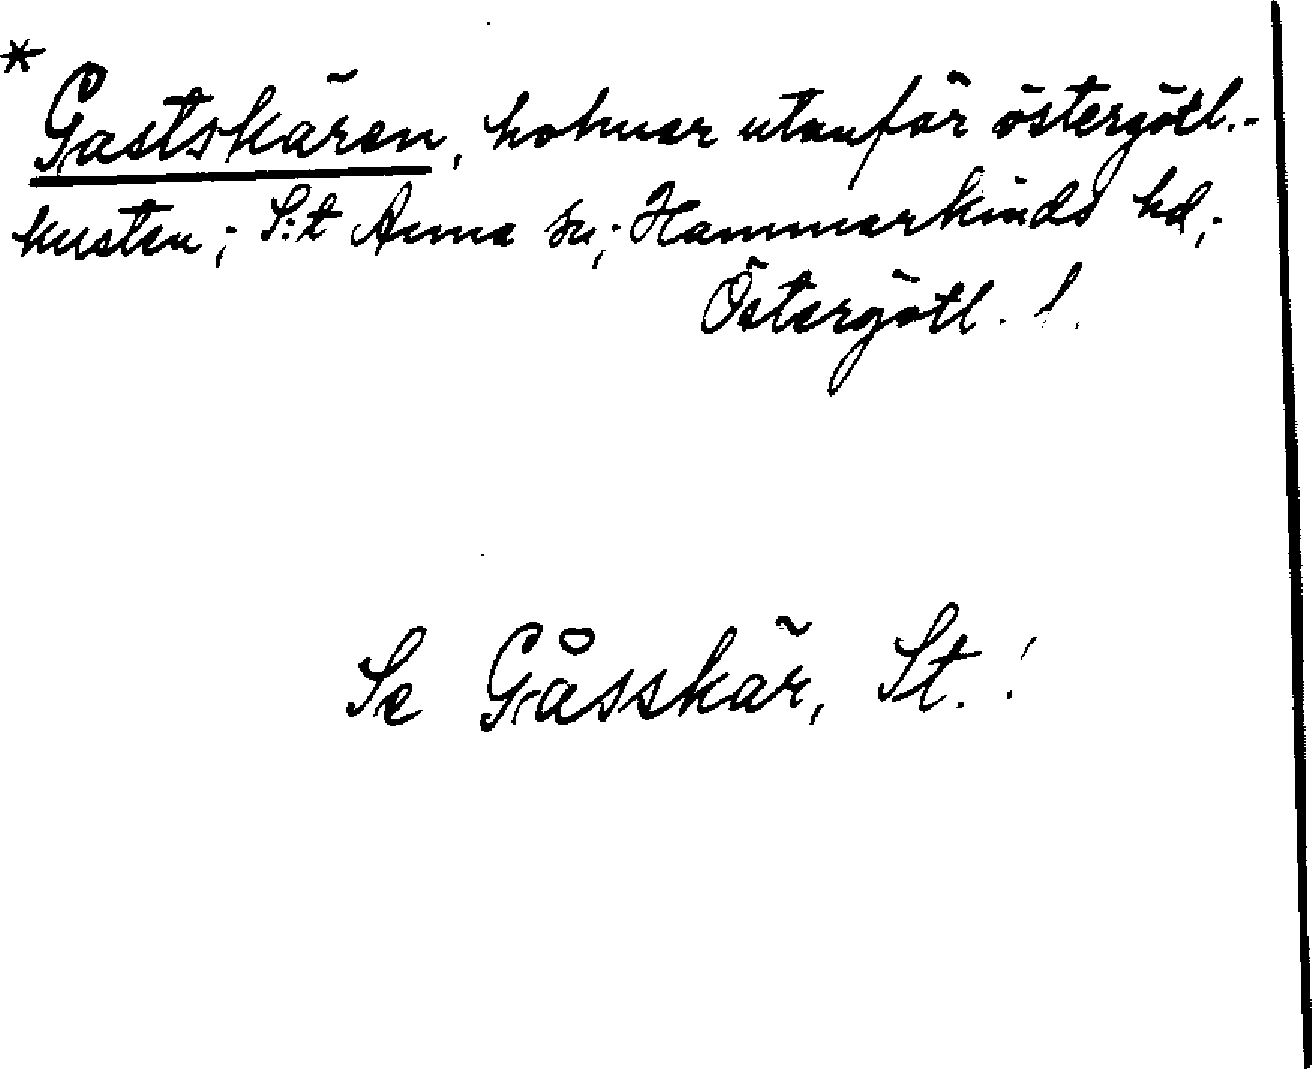 * Gastskären, holmar utanför östergötl.-
kusten; S:t Anna sn; Hammarkinds hd;
Östergötl. l.
Se Gåsskär, St.!